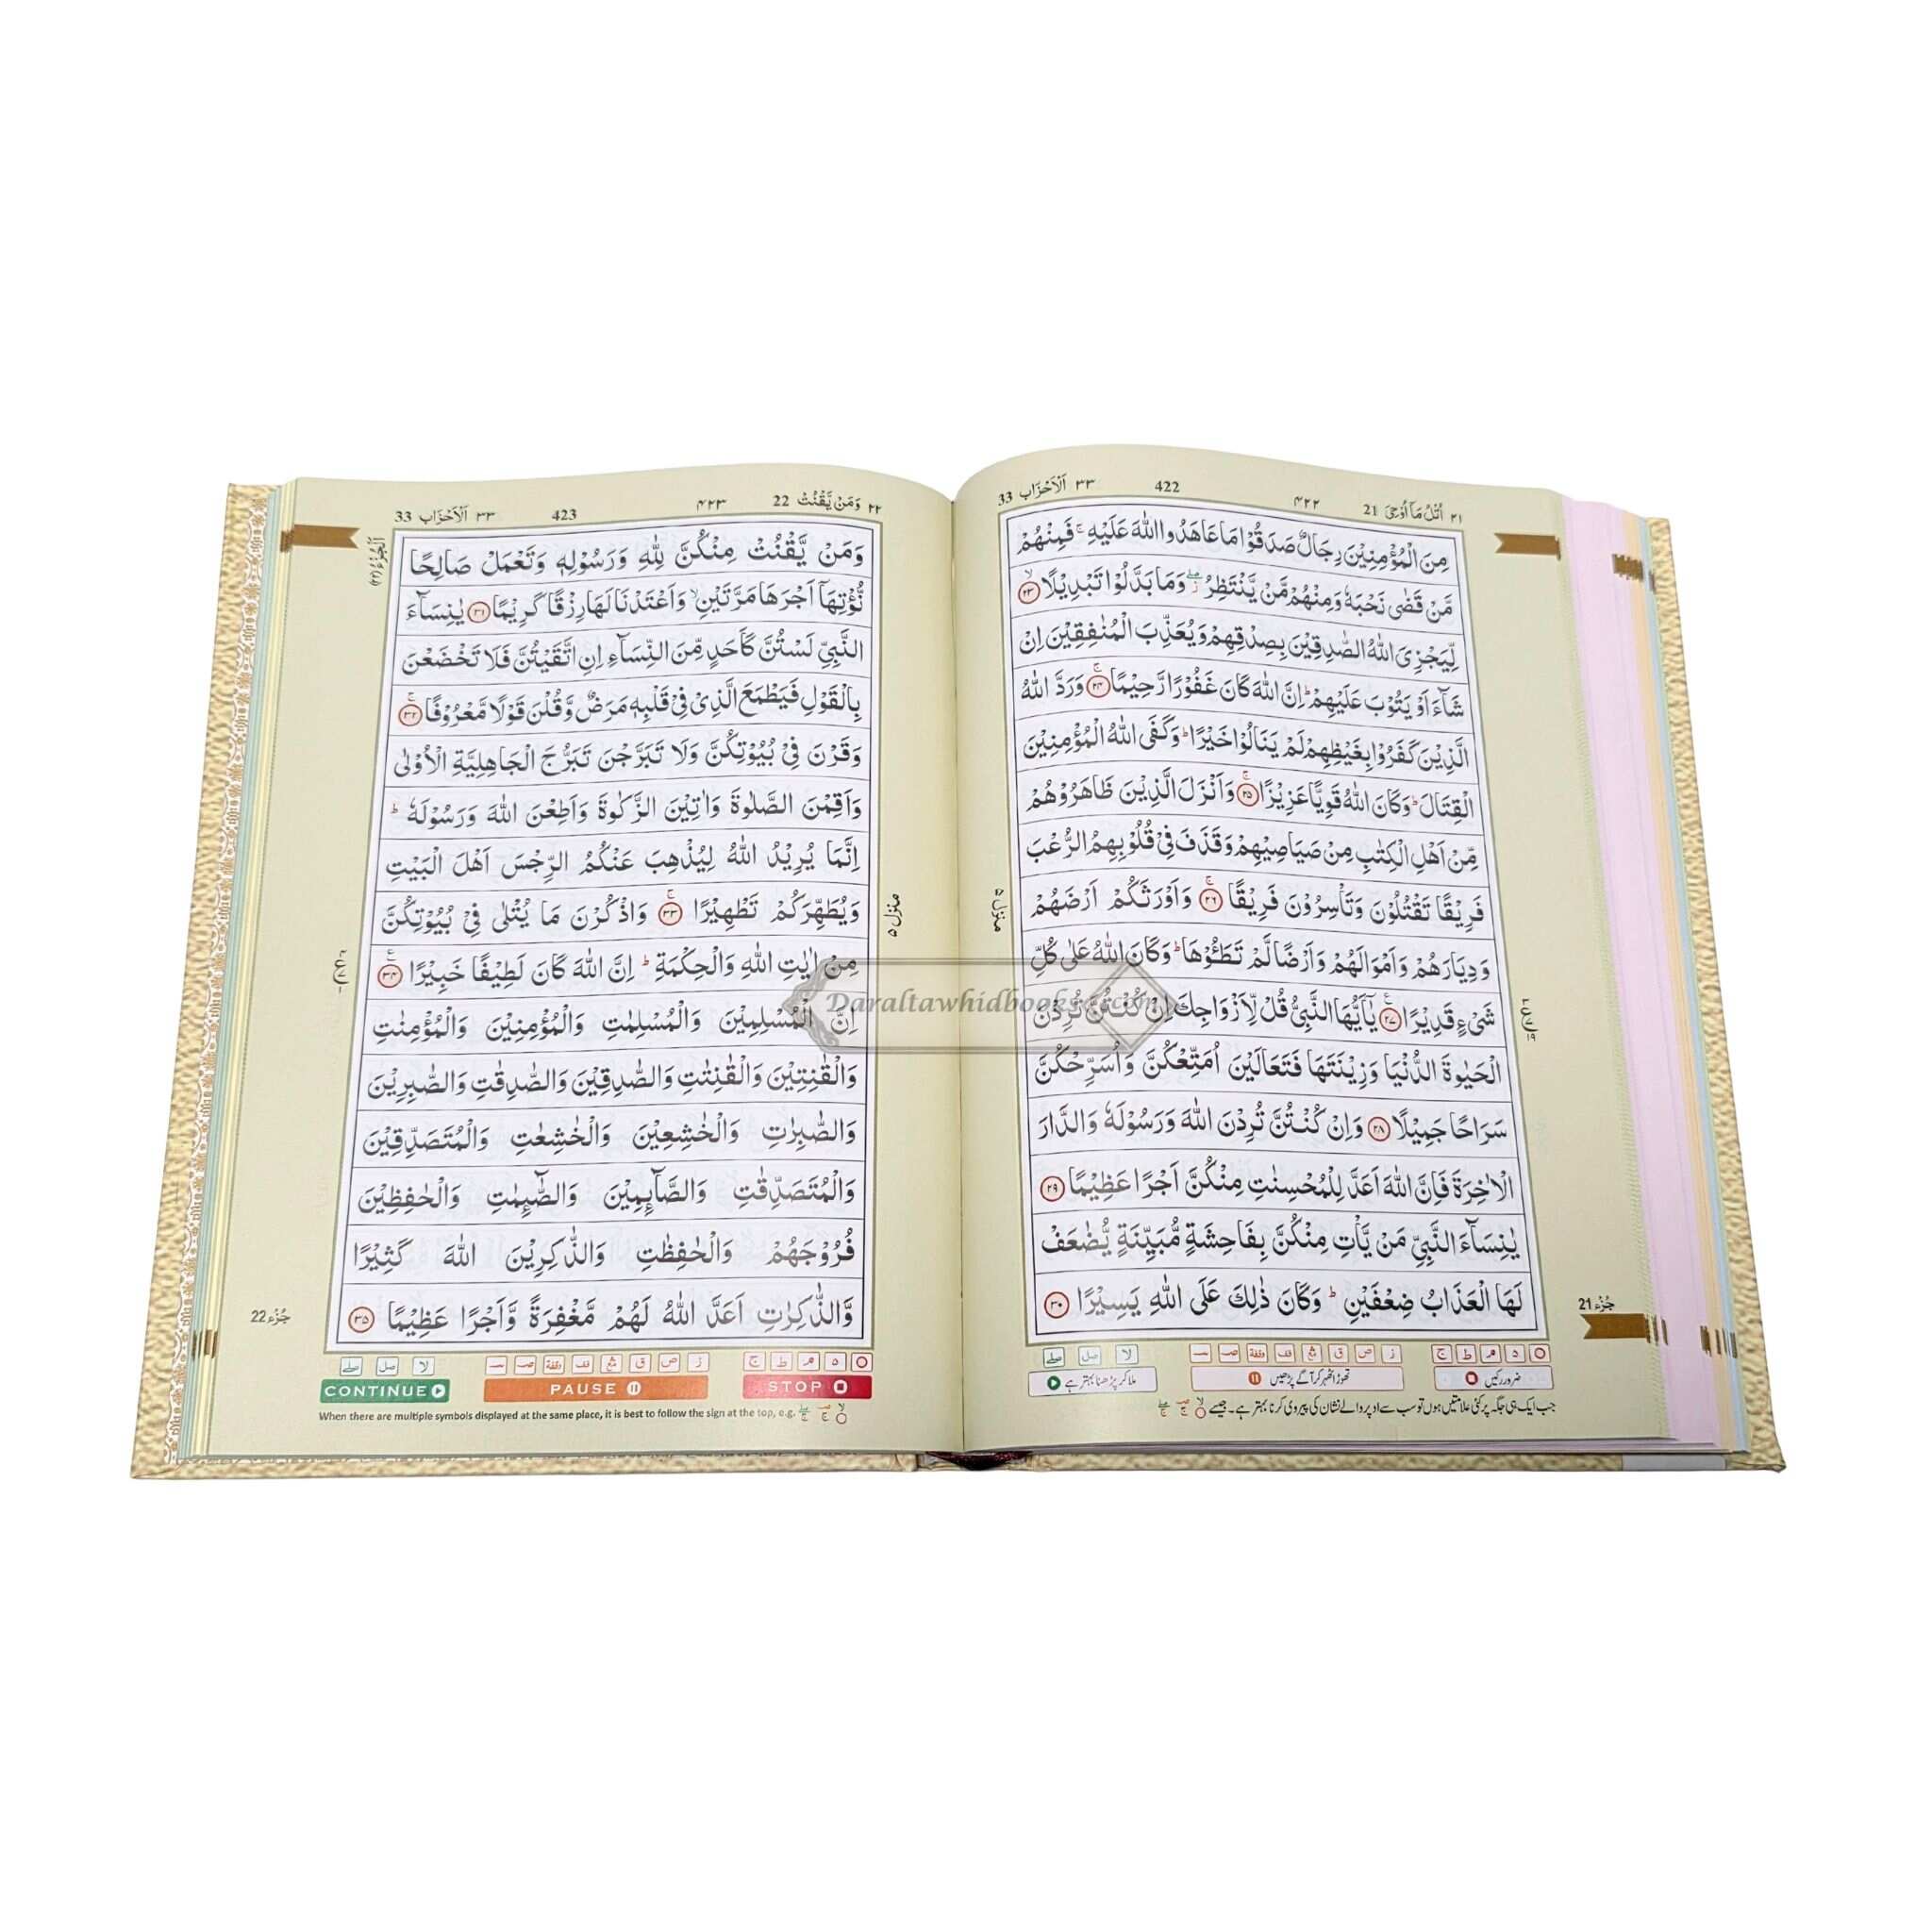 ٢١ اُتْلُ مَآ اُوْحِىَ 21 ۴۲۲ 422 ٣٣ اَلْاَحْزَاب 33
مِنَ الْمُؤْمِنِيْنَ رِجَالٌ صَدَقُوْا مَا عَاهَدُوا اللّٰهَ عَلَيْهِ ۚ فَمِنْهُمْ
مَّنْ قَضٰى نَحْبَهٗ وَمِنْهُمْ مَّنْ يَّنْتَظِرُ ۖ وَمَا بَدَّلُوْا تَبْدِيْلًا ۙ ٢٣
لِّيَجْزِىَ اللّٰهُ الصّٰدِقِيْنَ بِصِدْقِهِمْ وَيُعَذِّبَ الْمُنٰفِقِيْنَ اِنْ
شَآءَ اَوْ يَتُوْبَ عَلَيْهِمْ ؕ اِنَّ اللّٰهَ كَانَ غَفُوْرًا رَّحِيْمًا ۚ ٢٤ وَرَدَّ اللّٰهُ
الَّذِيْنَ كَفَرُوْا بِغَيْظِهِمْ لَمْ يَنَالُوْا خَيْرًا ؕ وَكَفَى اللّٰهُ الْمُؤْمِنِيْنَ
الْقِتَالَ ؕ وَكَانَ اللّٰهُ قَوِيًّا عَزِيْزًا ۚ ٢٥ وَاَنْزَلَ الَّذِيْنَ ظَاهَرُوْهُمْ
مِّنْ اَهْلِ الْكِتٰبِ مِنْ صَيَاصِيْهِمْ وَقَذَفَ فِىْ قُلُوْبِهِمُ الرُّعْبَ
فَرِيْقًا تَقْتُلُوْنَ وَتَاْسِرُوْنَ فَرِيْقًا ۚ ٢٦ وَاَوْرَثَكُمْ اَرْضَهُمْ
وَدِيَارَهُمْ وَاَمْوَالَهُمْ وَاَرْضًا لَّمْ تَطَـُٔوْهَا ؕ وَكَانَ اللّٰهُ عَلٰى كُلِّ
شَىْءٍ قَدِيْرًا ٢٧ يٰٓاَيُّهَا النَّبِىُّ قُلْ لِّاَزْوَاجِكَ اِنْ كُنْتُنَّ تُرِدْنَ
الْحَيٰوةَ الدُّنْيَا وَزِيْنَتَهَا فَتَعَالَيْنَ اُمَتِّعْكُنَّ وَاُسَرِّحْكُنَّ
سَرَاحًا جَمِيْلًا ٢٨ وَاِنْ كُنْتُنَّ تُرِدْنَ اللّٰهَ وَرَسُوْلَهٗ وَالدَّارَ
الْاٰخِرَةَ فَاِنَّ اللّٰهَ اَعَدَّ لِلْمُحْسِنٰتِ مِنْكُنَّ اَجْرًا عَظِيْمًا ٢٩
يٰنِسَآءَ النَّبِىِّ مَنْ يَّاْتِ مِنْكُنَّ بِفَاحِشَةٍ مُّبَيِّنَةٍ يُّضٰعَفْ
لَهَا الْعَذَابُ ضِعْفَيْنِ ؕ وَكَانَ ذٰلِكَ عَلَى اللّٰهِ يَسِيْرًا ٣٠
منزل ۵
جُزْء 21
ضرور رکیں
تھوڑا ٹھہر کر آگے پڑھیں
ملا کر پڑھنا بہتر ہے
جب ایک ہی جگہ پر کئی علامتیں ہوں تو سب سے اوپر والے نشان کی پیروی کرنا بہتر ہے۔ جیسے
٢٢ وَمَنْ يَّقْنُتْ 22 ۴۲۳ 423 ٣٣ اَلْاَحْزَاب 33
وَمَنْ يَّقْنُتْ مِنْكُنَّ لِلّٰهِ وَرَسُوْلِهٖ وَتَعْمَلْ صَالِحًا
نُّؤْتِهَآ اَجْرَهَا مَرَّتَيْنِ ۙ وَاَعْتَدْنَا لَهَا رِزْقًا كَرِيْمًا ٣١ يٰنِسَآءَ
النَّبِىِّ لَسْتُنَّ كَاَحَدٍ مِّنَ النِّسَآءِ اِنِ اتَّقَيْتُنَّ فَلَا تَخْضَعْنَ
بِالْقَوْلِ فَيَطْمَعَ الَّذِىْ فِىْ قَلْبِهٖ مَرَضٌ وَّقُلْنَ قَوْلًا مَّعْرُوْفًا ۚ ٣٢
وَقَرْنَ فِىْ بُيُوْتِكُنَّ وَلَا تَبَرَّجْنَ تَبَرُّجَ الْجَاهِلِيَّةِ الْاُوْلٰى
وَاَقِمْنَ الصَّلٰوةَ وَاٰتِيْنَ الزَّكٰوةَ وَاَطِعْنَ اللّٰهَ وَرَسُوْلَهٗ ؕ
اِنَّمَا يُرِيْدُ اللّٰهُ لِيُذْهِبَ عَنْكُمُ الرِّجْسَ اَهْلَ الْبَيْتِ
وَيُطَهِّرَكُمْ تَطْهِيْرًا ۚ ٣٣ وَاذْكُرْنَ مَا يُتْلٰى فِىْ بُيُوْتِكُنَّ
مِنْ اٰيٰتِ اللّٰهِ وَالْحِكْمَةِ ؕ اِنَّ اللّٰهَ كَانَ لَطِيْفًا خَبِيْرًا ٣٤
اِنَّ الْمُسْلِمِيْنَ وَالْمُسْلِمٰتِ وَالْمُؤْمِنِيْنَ وَالْمُؤْمِنٰتِ
وَالْقٰنِتِيْنَ وَالْقٰنِتٰتِ وَالصّٰدِقِيْنَ وَالصّٰدِقٰتِ وَالصّٰبِرِيْنَ
وَالصّٰبِرٰتِ وَالْخٰشِعِيْنَ وَالْخٰشِعٰتِ وَالْمُتَصَدِّقِيْنَ
وَالْمُتَصَدِّقٰتِ وَالصَّآئِمِيْنَ وَالصّٰٓئِمٰتِ وَالْحٰفِظِيْنَ
فُرُوْجَهُمْ وَالْحٰفِظٰتِ وَالذّٰكِرِيْنَ اللّٰهَ كَثِيْرًا
وَّالذّٰكِرٰتِ اَعَدَّ اللّٰهُ لَهُمْ مَّغْفِرَةً وَّاَجْرًا عَظِيْمًا ٣٥
منزل ۵
الْجُزْءُ (٢٢)
جُزْء 22
CONTINUE PAUSE STOP
When there are multiple symbols displayed at the same place, it is best to follow the sign at the top, e.g.
Daraltawhidbooks.com